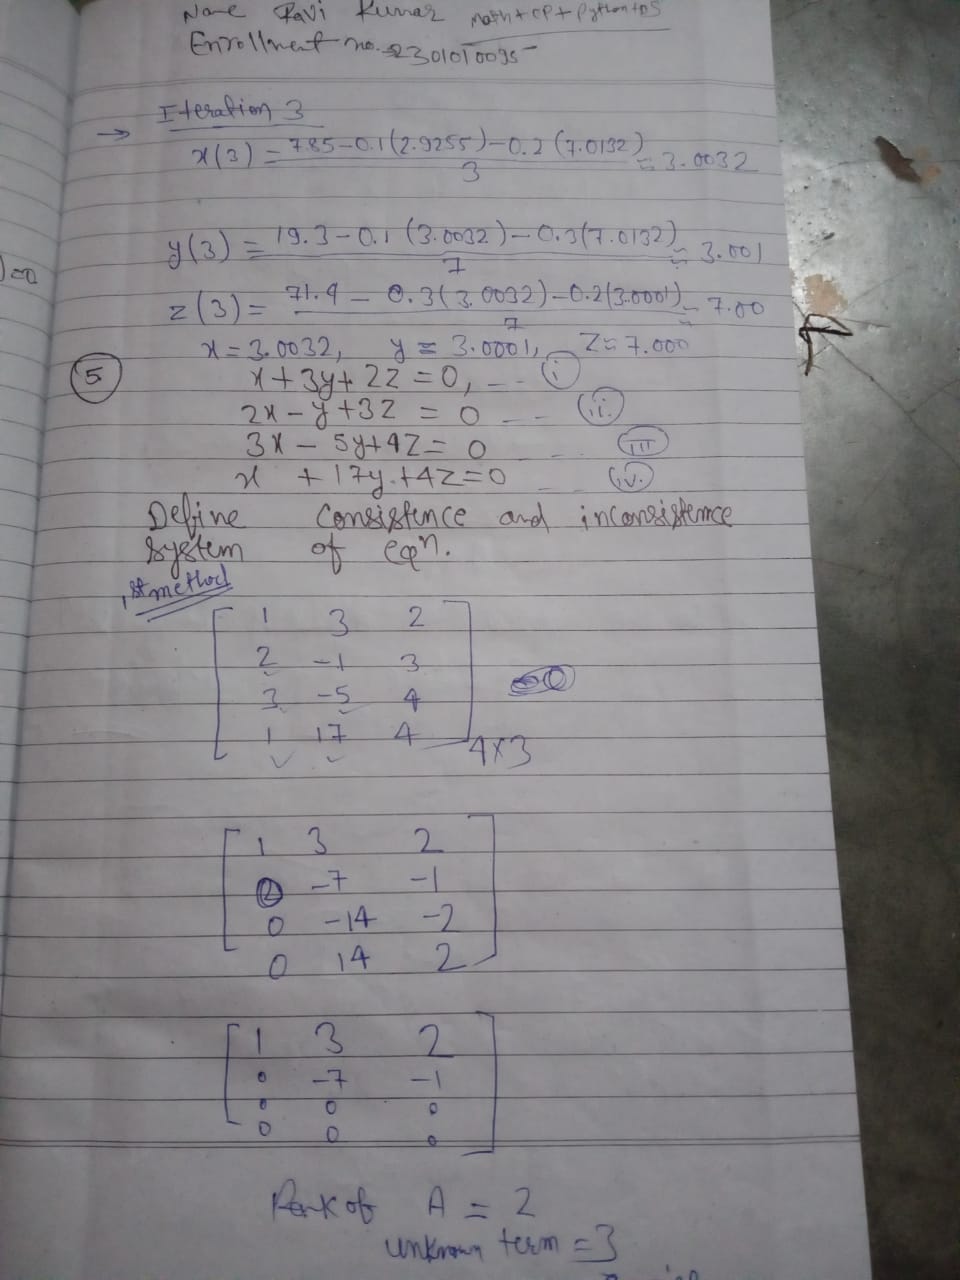 Name Ravi Kumar Math+CP+Python+DS
Enrollment no. 2301010095
→ Iteration 3
x(3) = 7.85-0.1(2.9255)-0.2(7.0132) / 3 = 3.0032
y(3) = 19.3-0.1(3.0032)-0.3(7.0132) / 7 = 3.001
=0
z(3) = 71.4-0.3(3.0032)-0.2(3.0001) / 7 = 7.00
x=3.0032, y=3.0001, z=7.000
5 x+3y+2z=0, -- i
2x-y+3z=0 -- ii.
3x-5y+4z=0 -- III
x+17y+4z=0 -- iv.
Define Consistence and inconsistence
system of eqn.
1st method
1 3 2
2 -1 3
3 -5 4
1 17 4
4x3
1 3 2
0 -7 -1
0 -14 -2
0 14 2
1 3 2
0 -7 -1
0 0 0
0 0 0
Rank of A = 2
unknown term = 3